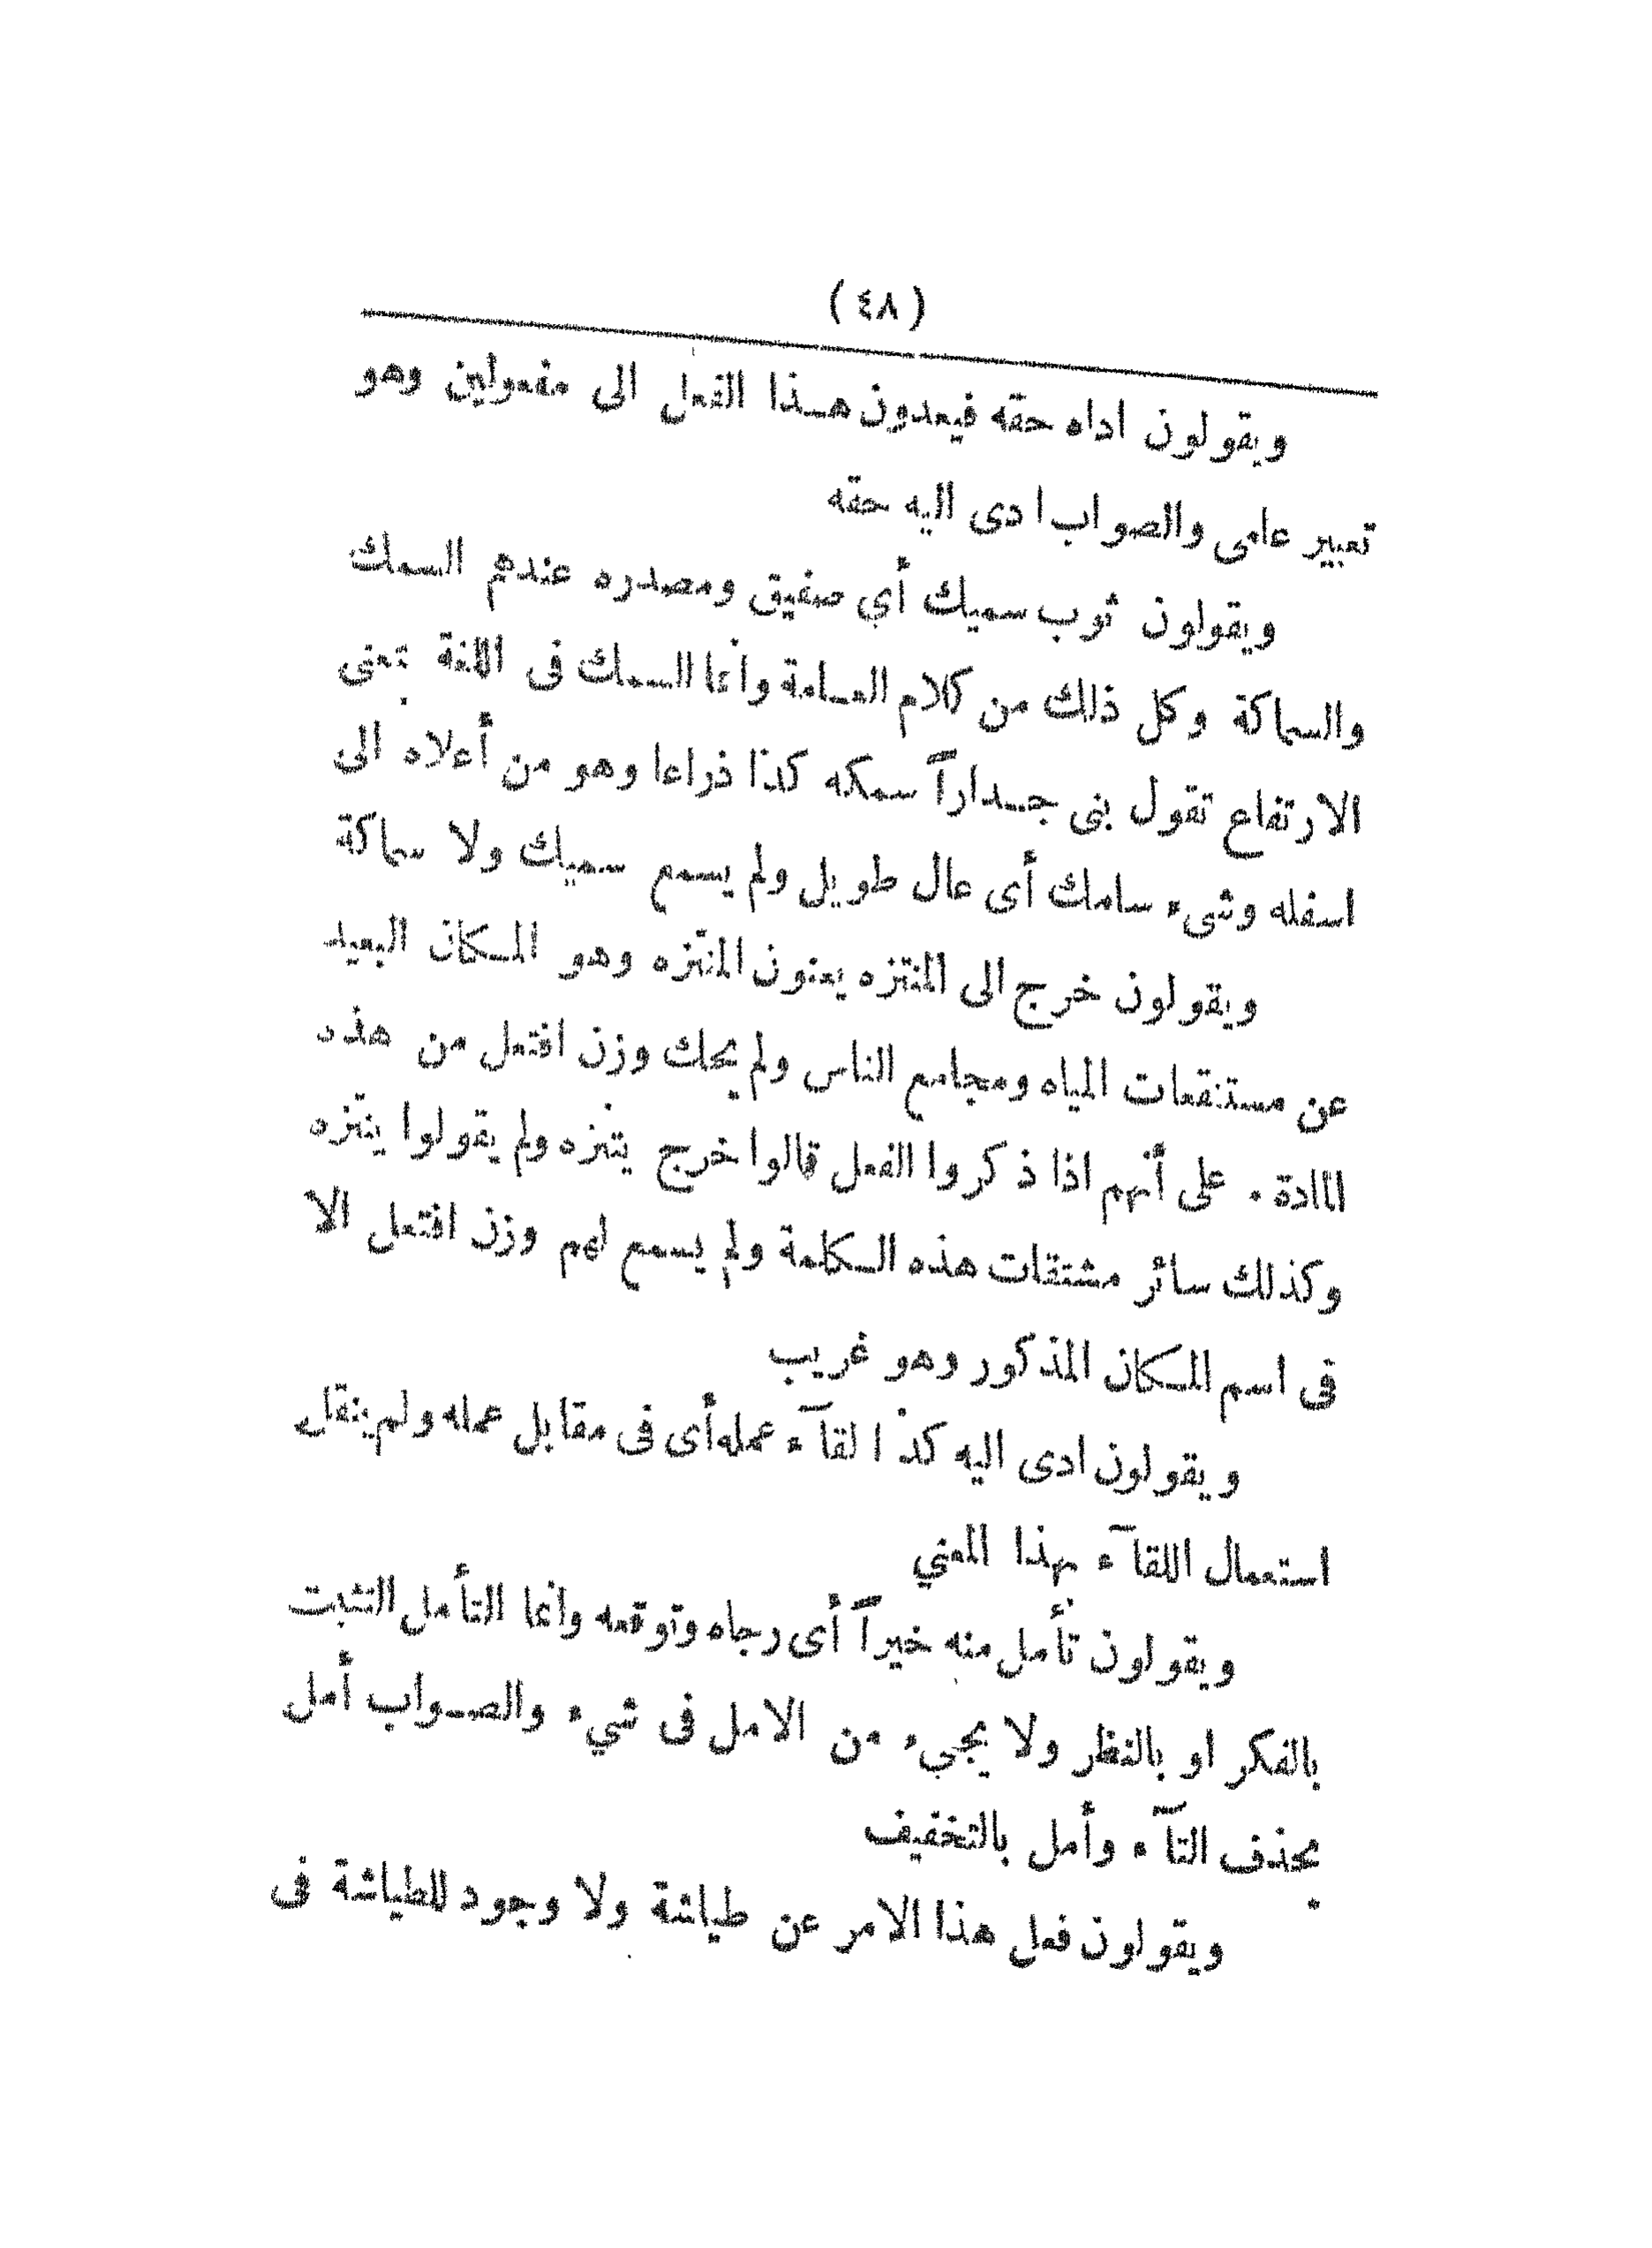 ( ٤٨ )
ويقولون اداه حقه فيعدون هـذا الفعل الى مفعولين وهو
تعبير عامى والصواب ادى اليه حقه
ويقولون ثوب سميك أي صفيق ومصدره عندهم السمك
والسماكة وكل ذلك من كلام العـامة وانما السمك فى اللغة بمعنى
الارتفاع تقول بنى جـداراً سمكه كذا ذراعا وهو من أعلاه الى
اسفله وشىء سامك أى عال طويل ولم يسمع سميك ولا سماكة
ويقولون خرج الى المنتزه يعنون المنتزه وهو المكان البعيد
عن مستنقعات المياه ومجامع الناس ولم يحك وزن افتعل من هذه
المادة . على أنهم اذا ذكروا الفعل قالوا خرج يتنزه ولم يقولوا ينتزه
وكذلك سائر مشتقات هذه الكلمة ولم يسمع لهم وزن افتعل الا
فى اسم المكان المذكور وهو غريب
ويقولون ادى اليه كذا لقآء عمله أى فى مقابل عمله ولم ينقل
استعمال اللقآء بهذا المعني
ويقولون تأمل منه خيراً أى رجاه وتوقعه وانما التأمل التثبت
بالفكر او بالنظر ولا يجيء من الامل فى شيء والصـواب أمل
بحذف التآء وأمل بالتخفيف
ويقولون فعل هذا الامر عن طياشة ولا وجود للطياشة فى